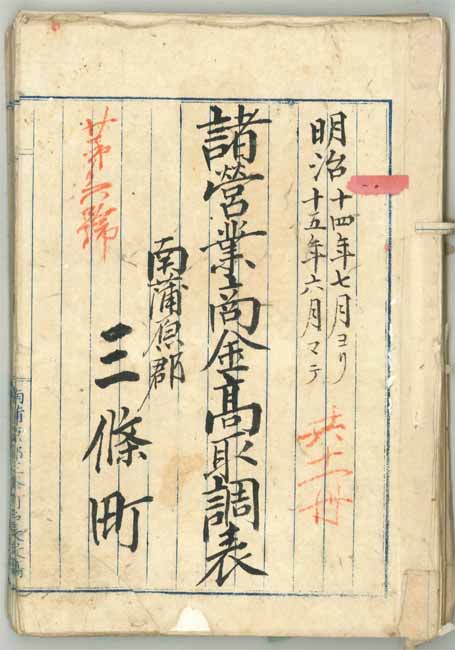 明治十四年七月ヨリ
十五年六月マテ
共十一冊
諸營業商金高取調表
南蒲原郡
三條町
廿第六號